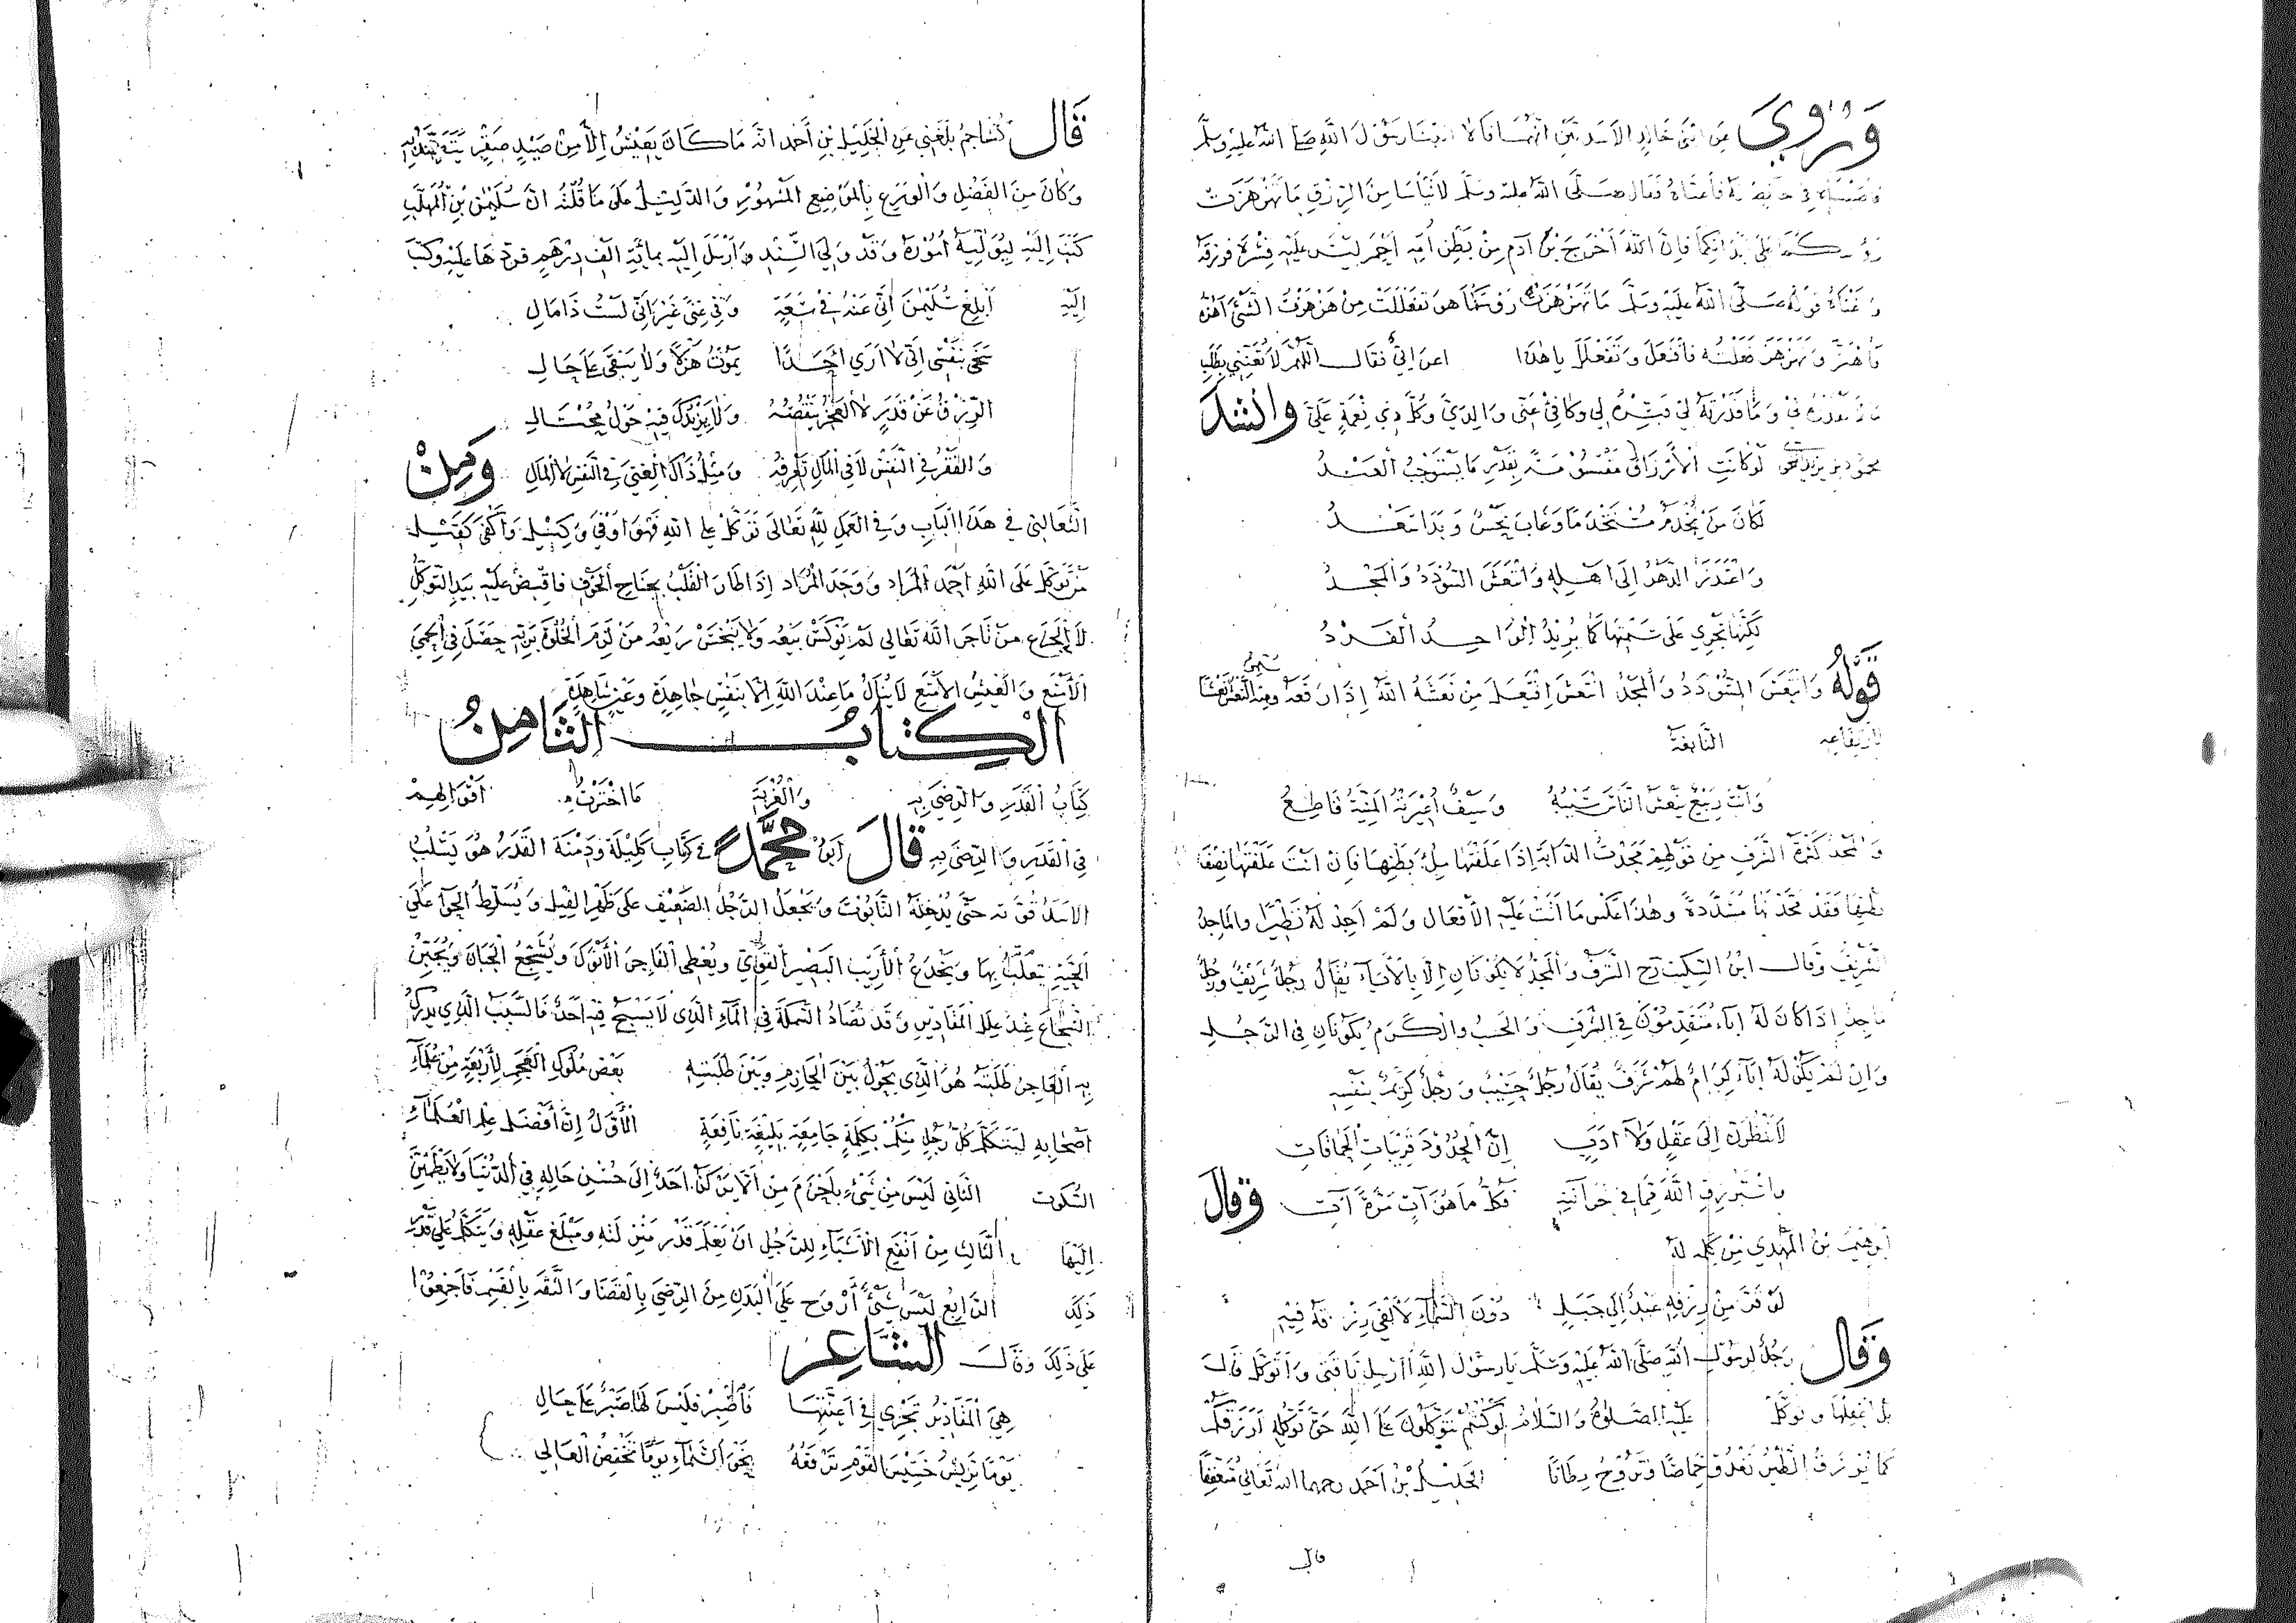 وَرُوِيَ عَن ابْنَىْ خَالِدٍ الاَسَدِيَّيْن انَّهُمَا قَالا اتَيْنَا رَسُوْلَ اللهِ صلى اللهُ عَلَيْهِ وَسَلَّمْ
فَاَعَنَّاهُ فَقَالَ صَلَّى اللهُ عليه وسلم لاَ تَيْأَسَا مِنَ الرِّزْقِ مَا تَهَزْهَزَتْ
رُؤُسكُمَا فَاِنَّ اللهَ اَخْرَجَ بْنَ آدَمَ مِنْ بَطْنِ اُمِّهِ اَحْمَرَ لَيْسَ عَلَيْهِ قِشْرَةٌ فرزقَهُ
قولُهُ صَلَّى اللهُ عَلَيْهِ وَسَلَّمَ مَا تَهَزْهَزَتْ رؤسكُمَا هو تفعللت مِنْ هَزْهَزْتُ الشَّئَ اَهُزُّهُ
فَاهْتَزَّ وَتَهَزْهَزَ فَعَلْتُه فَافْتَعَلَ وَتَفَعْلَلَ يا هَذَا اعرَابِيٌّ فقال اللَّهُمَّ لاَ تُعَنِّنِي بِطَلَبِ
مَا لَمْ تُقَدِّرْهُ لِي وَمَا قَدَّرْتَهُ لِيْ فَيَسِّرْهُ لِي وَكَافِئْ عَنِّى وَالِدِيَّ وَكُلَّ ذِي نِعْمَةٍ عَلَيَّ وانشد
لَوْ كَانَتِ الأَرْزَاقُ مَقْسُوْمَةً بِقَدْرِ مَا يَسْتَوْجِبُ الْعَبْدُ
لَكَانَ مَنْ يُخْدَمُ مُسْتَخْدَمًا وَغَابَ نَحْسٌ وَبَدَا سَعْدُ
وَاعْتَذَرَ الدَّهْرُ اِلَى اهْلِهِ وَانْتَعَشَ السُّؤْدَدُ وَالْمَجْدُ
لَكِنَّهَا تَجْرِي عَلَى سَمْتِهَا كَمَا يُرِيْدُ الْوَاحِدُ الْفَرْدُ
قَوْلُهُ وَانْتَعَشَ السُّؤْدَدُ وَالْمَجْدُ انْتَعَشَ اِفْتَعَلَ مِنْ نَعَشَهُ اللهُ اِذَا رَفَعَهُ وَمِنْه سُمِّيَ النَّعْشُ نَعْشًا
لارتِفَاعِهِ النَّابِغَةُ
وَاَنْتَ رَبِيْعٌ يَنْعَشُ النَّاسَ سَيْبُهُ وَسَيْفٌ اُعِيْرَتْهُ الْمَنِيَّةُ قَاطِعُ
وَالْمَجْدُ كَثْرَةُ الشَّرَفِ مِن قَوْلِهِمْ مَجَّدْتُ الدَّابَةَ اِذَا عَلَفْتَهَا مِلْءَ بَطْنِهَا فَاِنْ انْتَ عَلَفْتَهَا نِصْفَ
بَطْنِهَا فَقَدْ مَجَّدْتَهَا مُشَدَّدَةً وهَذَا عَكْسُ مَا اَتَتْ عَلَيْهِ الاَفْعَال وَلَمْ اَجِدْ لَهُ نَظِيْرًا والمَاجِدُ
الشَّرِيْفُ وَقَالَ ابْنُ السِّكِّيْتِ رَح الشَّرَفُ وَالْمَجْدُ لاَ يَكُوْنَانِ اِلاَّ بِالأَبَاءِ يُقَالُ رَجُلٌ شَرِيْفٌ وَرَجُلٌ
مَاجِدٌ اِذَا كَانَ لَهُ ابَاءٌ مُتَقَدِّمُوْنَ فِي الشَّرَفِ وَالْحَسَبُ وَالْكَرَمُ يَكُوْنَانِ فِي الرَّجُلِ
وَاِنْ لَمْ يَكُنْ لَهُ ابَاءٌ كِرَامٌ لَهُمْ شَرَفٌ يُقَالُ رَجُلٌ حَسِيْبٌ وَرَجُلٌ كَرِيْمٌ بِنَفْسِهِ
لاَ تَنْظُرَنَّ اِلَى عَقْلٍ وَلاَ ادَبٍ اِنَّ الْجُدُوْدَ قَرِيْنَاتُ الْحَمَاقَاتِ
وَاسْتَرْزِقِ اللهَ مِمَّا فِي خَزَآئِنِهِ فَكُلُّ مَا هُوَ آتٍ مَرَّةً آتِ وَقَالَ
ابرهِيْمَ بْنُ الْمَهْدِي مِنْ كَلِمَه لَهُ
لَوْ فَرَّ مِنْ رِزْقِهِ عَبْدٌ اِلَى جَبَلٍ دُوْنَ السَّمَاءِ لاَلْفَى رِزْقَهُ فِيْهِ
وَقَالَ رَجُلٌ لِرَسُوْلِ اللهِ صَلَّى اللهُ عَلَيْهِ وَسَلَّمَ يَا رَسُوْلَ اللهِ اُرْسِلُ نَاقَتِى وَاَتَوَكَّلُ قَالَ
بَلْ اِعْقِلْهَا وَتَوَكَّلْ عَلَيْهِ الصَّلَوةُ وَالسَّلاَمُ لَوْ كُنْتُمْ تَتَوَكَّلُوْنَ عَلَى اللهِ حَقَّ تَوَكُّلِهِ لَرَزَقَكُمْ
كَمَا يَرْزُقُ الطَّيْرَ تَغْدُوْ خِمَاصًا وَتَرُوْحُ بِطَانًا الخَلِيْلُ بْنُ اَحْمَد رحمهما الله تَعَالَى مُتَعَفِّفًا
قال
قَالَ كُشَاجِمُ بَلَغَنِي عَنِ الْخَلِيْلِ بْنِ أَحْمَد انَّهُ مَا كَانَ يَعِيْشُ اِلاَّ مِنْ صَيْدِ صَقْرٍ يَتَعَيَّشُ بِهِ
وَكَانَ مِنَ الْفَضْلِ وَالْوَرَعِ بِالْمَوْضِعِ الْمَشْهُوْرِ وَالدَّلِيْلُ عَلَى مَا قُلْتُهُ انَّ سُلَيْمَنَ بْنَ الْمُهَلَّبِ
كَتَبَ اِلَيْهِ لِيُوَلِّيَهُ اُمُوْرَهُ وَقَدْ وَلِيَ السِّنْدَ وَاَرْسَلَ اِلَيْهِ بِمائَةِ الْفِ دِرْهَمٍ فردّهَا عَلَيْهِ وكتبَ
اِلَيْهِ اَبْلِغْ سُلَيْمَنَ اَنِّى عَنْهُ فِىْ سَعَةٍ وَفِى غِنًى غَيْرَ اَنِّى لَسْتُ ذَا مَالِ
سَخَّى بِنَفْسِى اَنِّى لاَ اَرَي اَحَدًا يَمُوْتُ هَزْلاً وَلاَ يَبْقَى عَلَى حَالِ
الرِّزْقُ عَنْ قَدَرٍ لاَ العَجْزُ يَنْقُصُهُ وَلاَ يَزِيْدُكَ فِيْهِ حَوْلُ مُحْتَالِ
وَالفَقْرُ فِى النَّفْسِ لاَ فِى الْمَالِ تَعْرِفُهُ وَمِثْلُ ذَاكَ الْغِنَى فِي النَّفْسِ لاَ الْمَالِ وَمِنْ
الثَّعَالِبى فِي هَذَا الْبَابِ وَفِي الْعَمَلِ لِلّهِ تَعَالَى تَوَكَّلْ عَلَى اللهِ فَهُوَ اَوْفَى وَكِيْلٍ وَاَكْفَى كَفِيْلٍ
مَنْ تَوَكَّلَ عَلَى اللهِ اَحْمَدَ الْمُرَاد وَوَجَدَ الْمُرَاد اِذَا طَارَ الْقَلْبُ بِجَنَاحِ الْخَوْفِ فَاقْبِضْ عَلَيْهِ بِيَدِ التَّوَكُّلِ
لاَ الْجَزَع مَنْ تَاجَرَ اللهَ تَعَالَى لَمْ يُوْكَسْ بَيْعُهُ وَلاَ يُبْخَسْ رَيْعُهُ مَنْ لَزِمَ الْخَلْوَةَ بِرَبِّهِ حَصَلَ فِي الْحِمَى
الأَمْنَعِ وَالْعَيْشِ الاَمْتَعِ لاَ يُنَالُ مَا عِنْدَ اللهِ اِلاَّ بِنَفْسٍ جَاهِدَةٍ وَعَيْنٍ سَاهِدَةٍ
الكِتَابُ الثَّامِنُ
كِتَابُ القَدَرِ وَالرِّضَى بِهِ وَالْغُرْبَةِ مَا اخْتَرْتُهُ اَقْوَالِهِمْ
فِى الْقَدَرِ وَالرِّضَى بِهِ قَالَ اَبُوْ مُحَمَّد فِي كِتَابِ كَلِيْلَةَ وَدِمْنَةَ القَدَرُ هُوَ يَسْلُبُ
الاسَدَ قُوَّتَه حَتَّى يُدْخِلَهُ التَّابُوْتَ وَيَجْعَلُ الرَّجُلَ الضَّعِيْفَ عَلَى ظَهْرِ الْفِيْلِ وَيُسَلِّطُ الْحَوَّآ عَلَى
الْحَيَّةِ يَتَلَعَّبُ بِهَا وَيَخْدَعُ الأَرِيْبَ الْبَصِيْرَ القَوِيَّ ويُعْطِى الْفَاجِرَ الأَنْوَكَ وَيُشَجِّعُ الْجَبَانَ وَيُجَبِّنُ
الشُّجَاعَ عِنْدَ عِلَلِ الْمَقَادِيْرِ وَقَدْ تُصَادُ السَّمَكَةُ فِى الْمَآءِ الَّذِى لاَ يَسْبَحُ فِيْهِ اَحَدٌ فَالسَّبَبُ الَّذِي يُدْرِكُ
بِهِ الْعَاجِزُ طَلَبَتَهُ هُوَ الَّذِى يَحُوْلُ بَيْنَ الْحَازِمِ وَبَيْنَ طَلَبَتِهِ بَعْضُ مُلُوْكِ الْعَجَمِ لأَرْبَعَةٍ مِنْ عُلَمَاءِ
اَصْحَابِهِ لِيَتَكَلَّمْ كُلُّ رَجُلٍ مِنْكُمْ بِكَلِمَةٍ جَامِعَةٍ بَلِيْغَةٍ نَافِعَةٍ الأَوَّلُ اِنَّ أَفْضَلَ عِلْمِ الْعُلَمَاءِ
السُّكُوت الثَّانِى لَيْسَ مِنْ شَىْءٍ بِاَحْزَمَ مِنْ اَلاَّ يَرْكَنَ اَحَدٌ اِلَى حُسْنِ حَالِهِ فِي الدُّنْيَا وَلاَ يَطْمَئِنَّ
اِلَيْهَا الثَّالِثُ مِنْ اَنْفَعِ الأَشْيَاءِ لِلرَّجُلِ انْ يَعْلَمَ قَدْرَ مَنْزِلَتِهِ وَمَبْلَغَ عَقْلِهِ وَيَتَكَلَّمَ عَلَى قَدْرِ
ذَلِكَ الرَّابِعُ لَيْسَ شَىْءٌ أَرْوَحَ عَلَى الْبَدَنِ مِنَ الرِّضَى بِالْقَضَا وَالثِّقَةِ بِالْقَسْمِ فَاَجْمَعُوْا
عَلَى ذَلِكَ وَقَالَ الشَّاعِرُ
هِيَ الْمَقَادِيْرُ تَجْرِي فِى اَعِنَّتِهَا فَاصْبِرْ فَلَيْسَ لَهَا صَبْرٌ عَلَى حَالِ
يَوْمًا تَرِيْشُ خَسِيْسَ القَوْمِ تَرْفَعُهُ نَحْوَ السَّمَاءِ وَيَوْمًا تَخْفِضُ الْعَالِى